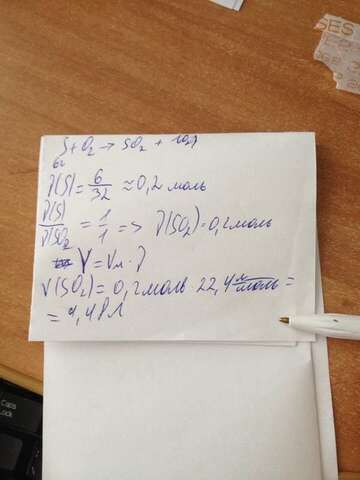 S + O₂ → SO₂ + 
6г
ν(S) = 6/32 ≈ 0,2 моль
ν(S)/ν(SO₂) = 1/1 => ν(SO₂) = 0,2 моль
V = Vм · ν
V(SO₂) = 0,2 моль · 22,4 л/моль =
= 4,48 л
SES
Caps
Lock